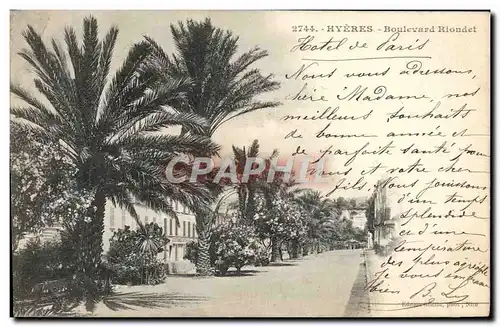 2744. - HYÈRES. - Boulevard Riondet
Hotel de Paris
Nous vous adressons,
chère Madame, nos
meilleurs souhaits
de bonne année et
de parfaite santé pour
vous et votre cher
fils. Nous jouissons
d'un temps
splendide
et d'une
température
de
je vous em
bien
CPA